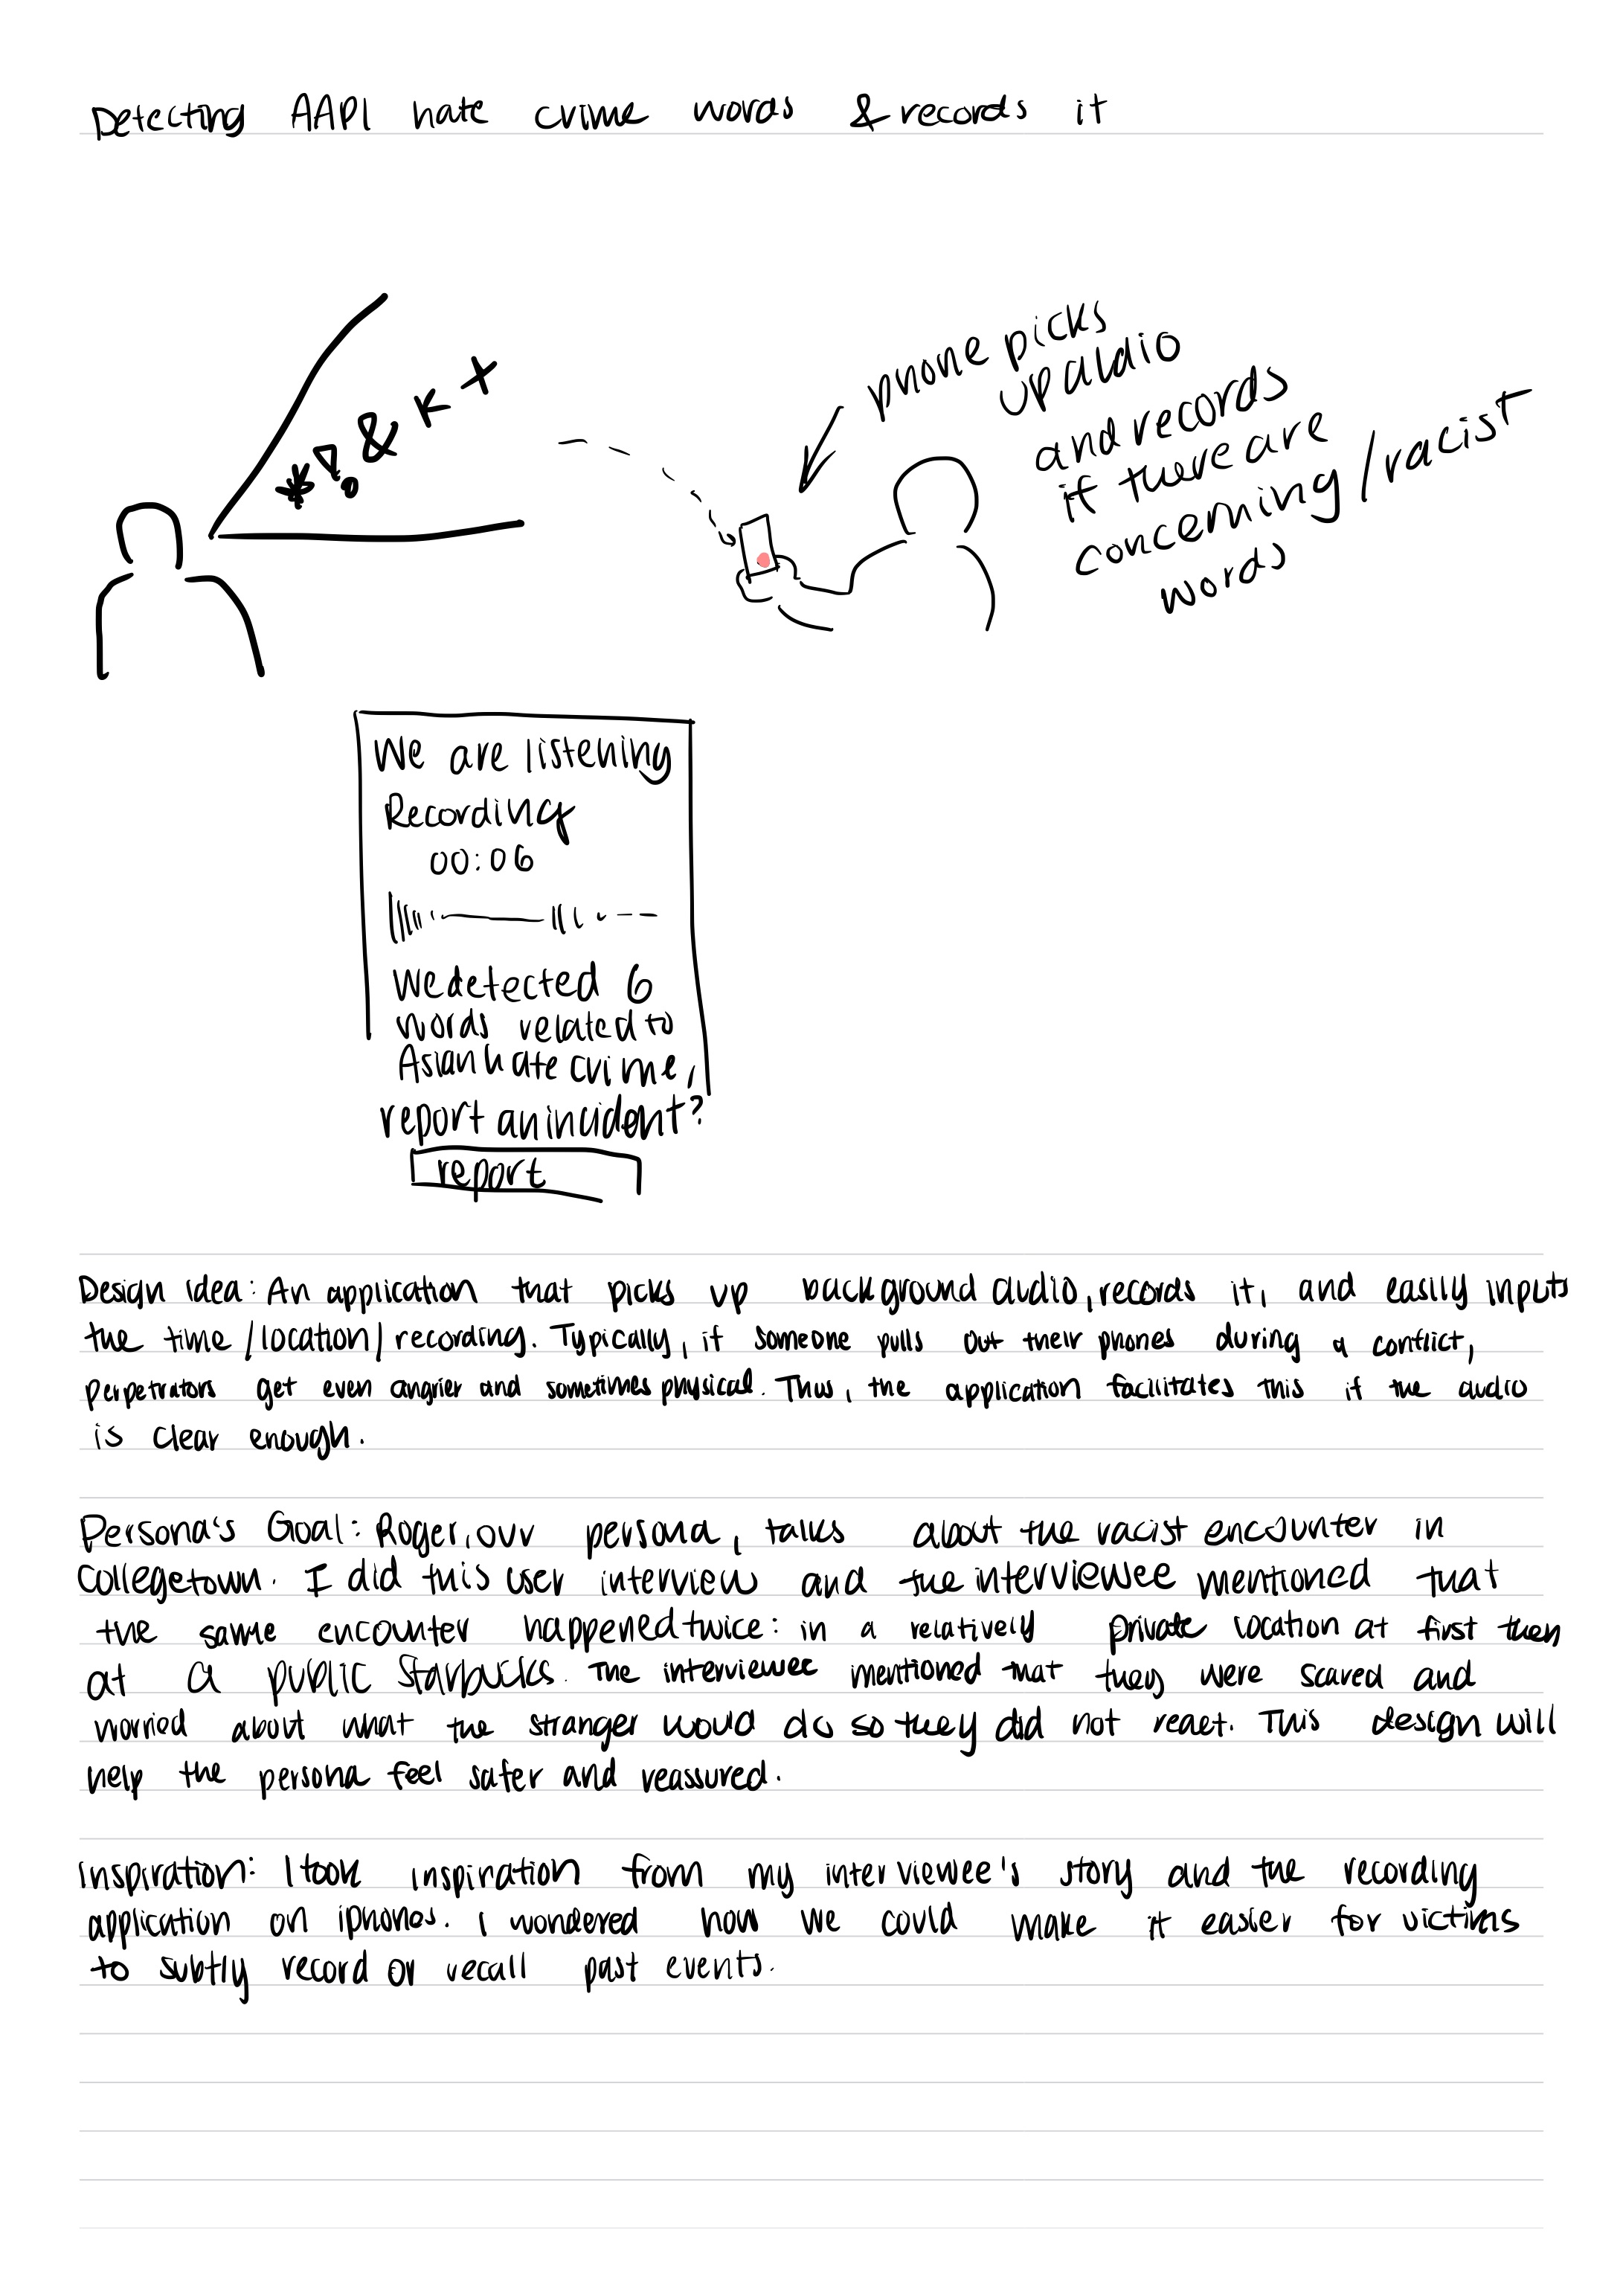 Detecting AAPI hate crime words & records it
*!?&K+
phone picks
up audio
and records
if there are
concerning/racist
words
We are listening
Recording
00:06
We detected 6
words related to
Asian hate crime,
report an incident?
report
Design idea: An application that picks up background audio, records it, and easily inputs
the time/location/recording. Typically, if someone pulls out their phones during a conflict,
perpetrators get even angrier and sometimes physical. Thus, the application facilitates this if the audio
is clear enough.
Persona's Goal: Roger, our persona, talks about the racist encounter in
Collegetown. I did this user interview and the interviewee mentioned that
the same encounter happened twice: in a relatively private location at first then
at a public Starbucks. The interviewee mentioned that they were scared and
worried about what the stranger would do so they did not react. This design will
help the persona feel safer and reassured.
Inspiration: I took inspiration from my interviewee's story and the recording
application on iphones. I wondered how we could make it easier for victims
to subtly record or recall past events.